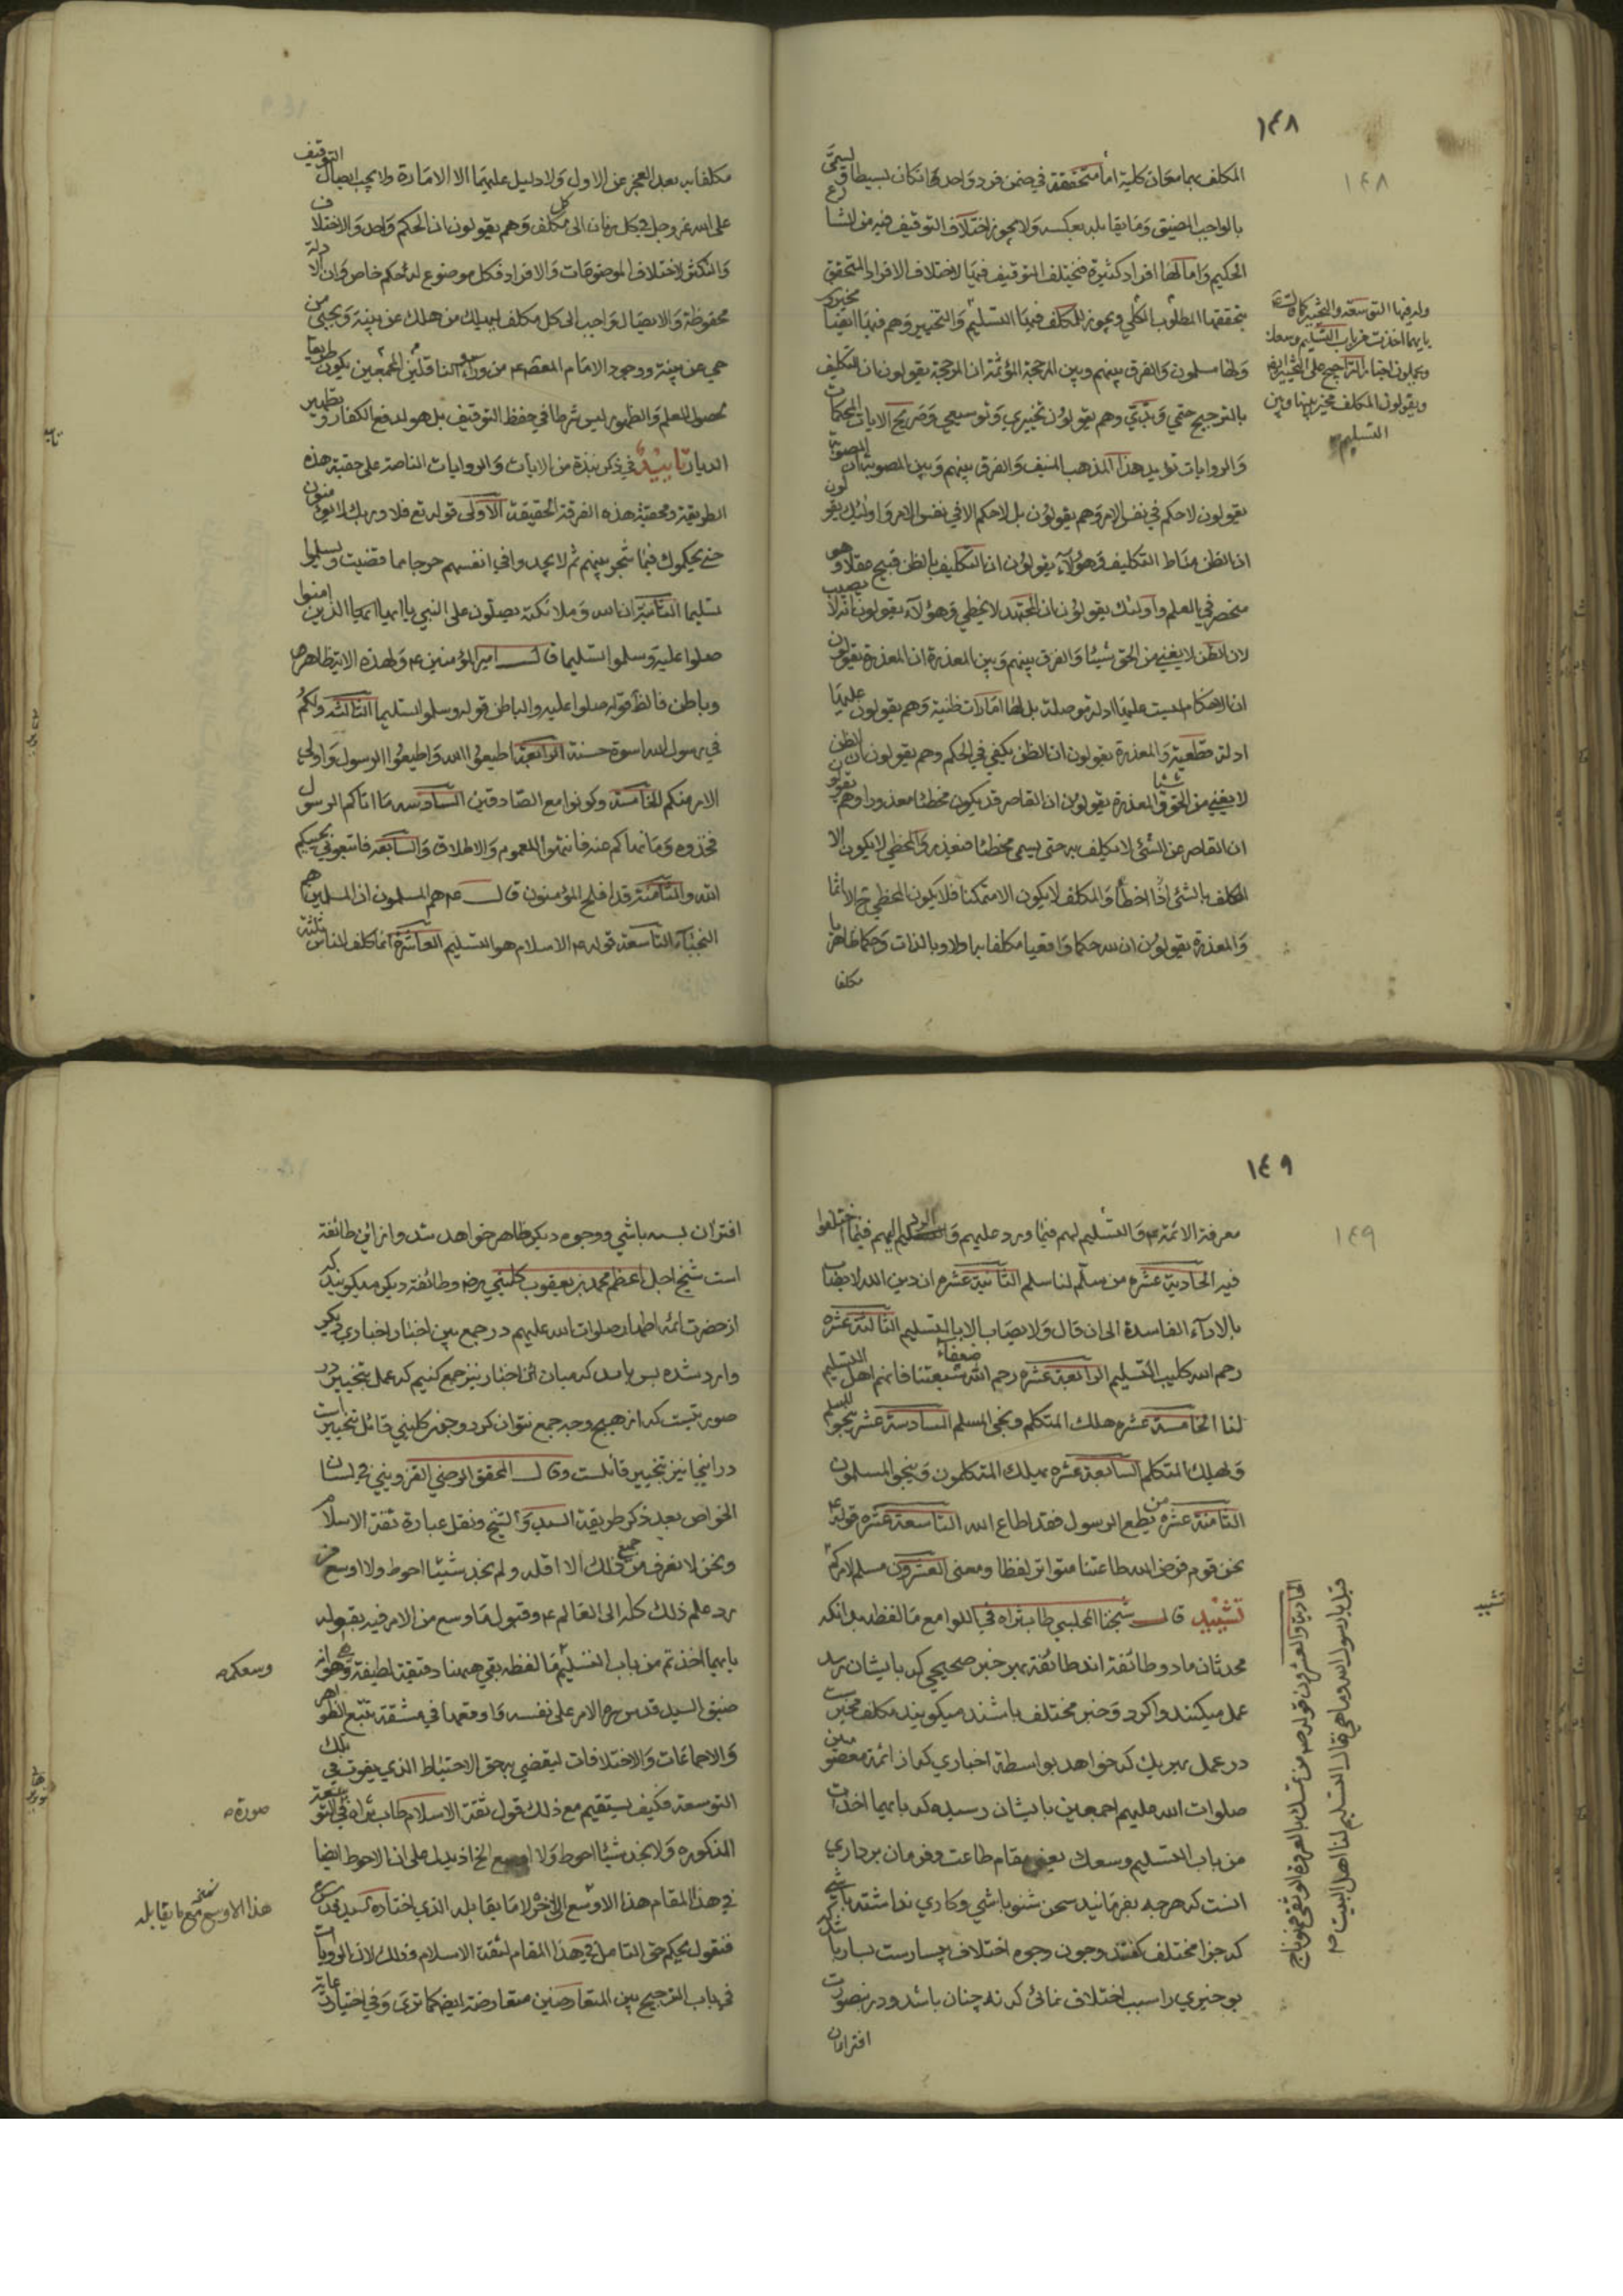 ١٤٨
١٤٨
المكلف بما معان كلية اما متحققة في ضمن فرد واحد وان كان بسيطا ويسمى
بالواجب المضيق وما يقابله بعكسه ولا يجوز اختلاف التوقيف فيه من الشارع
الحكيم واما لها افراد كثيرة فيختلف التوقيف فيها لاختلاف الافراد المتحقق
بتحققها المطلوب الكلي ويجوز للمكلف فيها التسليم والتخيير وهم فيها ايضا مخيرون
ولها مسلمون والفرق بينهم وبين المرجحة المؤثمة ان المرجحة يقولون ان التكليف
بالترجيح حتمي وبتي وهم يقولون تخييري وتوسيعي وصريح الايات المحكمات
والروايات تؤيد هذا المذهب المنيف والفرق بينهم وبين المصوبة ان المصوبة
يقولون لا حكم في نفس الامر وهم يقولون بل لا حكم الا في نفس الامر واولئك يقولون
ان الظن مناط التكليف وهؤلاء يقولون ان التكليف بالظن قبيح عقلا وهو
منحصر في العلم واولئك يقولون ان المجتهد لا يخطي وهؤلاء يقولون انه لا يصيب
لان الظن لا يغني من الحق شيئا والفرق بينهم وبين المعذرة ان المعذرة يقولون
ان الاحكام ليست عليها ادلة موصلة بل لها امارات ظنية وهم يقولون عليها
ادلة قطعية والمعذرة يقولون ان الظن يكفي في الحكم وهم يقولون ان الظن
لا يغني من الحق شيئا والمعذرة يقولون ان القاصر قد يكون مخطئا معذورا وهم يقولون
ان القاصر عن الشئ لا يكلف به حتى يسمى مخطئا فيعذر والمخطي لا يكون الا
المكلف بالشئ اذا اخطأ والمكلف لا يكون الا متمكنا فلا يكون المخطي ح الا اثما
والمعذرة يقولون ان لله حكما واقعيا مكلفا به اولا وبالذات وحكما ظاهريا
مكلفا
وله فيها التوسعة والتخيير كما قال ع
بايهما اخذت من باب التسليم وسعك
ويحملون اخبار التراجيح على التخيير ايضا
ويقولون المكلف مخير بينها وبين
التسليم
مكلفا به بعد العجز عن الاول ولا دليل عليهما الا الامارة ولا يجب ايصال التوقيف
على الله عز وجل في كل زمان الى كل مكلف وهم يقولون ان الحكم واحد والاختلاف
والتكثر لاختلاف الموضوعات والافراد فكل موضوع له حكم خاص وان الادلة
محفوظة والايصال واجب الى كل مكلف ليهلك من هلك عن بينة ويحيى من
حي عن بينة ووجود الامام المعصوم ع من وراء الناقلين المجمعين يكون طريقا
لحصول العلم والظهور ليس شرطا في حفظ التوقيف بل هو لدفع الكفار وتطهير
الديار تأييد في ذكر نبذة من الايات والروايات الناصة على حقية هذه
الطريقة ومحقية هذه الفرقة الحقيقة الاولى قوله تع فلا وربك لا يؤمنون
حتى يحكموك فيما شجر بينهم ثم لا يجدوا في انفسهم حرجا مما قضيت ويسلموا
تسليما الثانية ان الله وملائكته يصلون على النبي يا ايها الذين امنوا
صلوا عليه وسلموا تسليما قال امير المؤمنين ع ولهذه الاية ظاهر
وباطن فالظ قوله صلوا عليه والباطن قوله وسلموا تسليما الثالثة ولكم
في رسول الله اسوة حسنة الرابعة اطيعوا الله واطيعوا الرسول واولي
الامر منكم الخامسة وكونوا مع الصادقين السادسة ما اتاكم الرسول
فخذوه وما نهاكم عنه فانتهوا للعموم والاطلاق والسابعة فاتبعوني يحببكم
الله والثامنة قد افلح المؤمنون قال ع هم المسلمون ان المسلمين هم
النجباء التاسعة قوله ع الاسلام هو التسليم العاشرة انما كلف الناس ثلثة
١٤٩
١٤٩
معرفة الائمة ع والتسليم لهم فيما ورد عليهم والرد اليهم فيما اختلفوا
فيه الحادية عشره من سلم لنا سلم الثانية عشره ان دين الله لا يصاب
بالاراء الفاسدة الى ان قال ولا يصاب الا بالتسليم الثالثة عشره
رحم الله كليب التسليم الرابعة عشره رحم الله ضعفاء شيعتنا فانهم اهل التسليم
لنا الخامسة عشره هلك المتكلم ونجى المسلم السادسة عشر ينجو المسلم
ويهلك المتكلم السابعة عشره يهلك المتكلمون وينجو المسلمون
الثامنة عشره من يطع الرسول فقد اطاع الله التاسعة عشره قوله ع
نحن قوم فرض الله طاعتنا متواتر لفظا ومعنى العشرون مسلم لامركم
تشييد قال شيخنا المجلسي طاب ثراه في اللوامع ما لفظه بدانكه
محدثان ما دو طائفة اند طائفة بهر خبر صحيحي كه بايشان رسد
عمل ميكنند واكر دو خبر مختلف باشند ميكويند مكلف مخير است
در عمل بهر يك كه خواهد بواسطة اخباري كه از ائمة معصومين
صلوات الله عليهم اجمعين بايشان رسيده كه بايهما اخذت
من باب التسليم وسعك يعني مقام طاعت وفرمان برداري
انست كه هرچه بفرمانيد سخن شنو باشي وكاري نداشته باشي
كه چرا مختلف كفتند وچون وجوه اختلاف بسيارست بسا باشد
بو خبري را سبب اختلاف نمائى كه نه چنان باشد ودر ينصورت
افتراءان
الحادية والعشرون قوله ص من تمسك بالعروة الوثقى فهو ناج
قيل يا رسول الله وما هي قال التسليم لنا اهل البيت صح
افترا ان بسه باشي ووجوه ديكر ظاهر خواهد شد واز اين طائفة
است شيخ اجل اعظم محمد بن يعقوب كليني رضه وطائفة ديكر ميكويند كه
از حضرت ائمه اطهار صلوات الله عليهم در جمع بين اخبار اخباري ديكر
وارد شده بس بايد كه ميان ان اخبار نيز جمع كنيم كه عمل بتخيير در
صورتيست كه از هيچ وجه جمع نتوان كرد وچون كليني قائل بتخيير است
در اينجا نيز بتخيير قائلست وقال المحقق الرضي القزويني في لسان
الخواص بعد ذكر طريقة السيد والشيخ ونقل عبارة ثقة الاسلام
ونحن لا نعرف من جميع ذلك الا اقله ولم نجد شيئا احوط ولا اوسع من
رد علم ذلك كله الى العالم ع وقبول ما وسع من الامر فيه بقوله
بايهما اخذتم من باب التسليم ما لفظه بقي ههنا دقيقة لطيفة وهو انه
ضيق السيد قدس سره الامر على نفسه واوقعها في مشقة تتبع الظواهر
والاجماعات والاختلافات ليقضي به حق الاحتياط الذي يفوت في تلك
التوسعة فكيف يستقيم مع ذلك قول ثقة الاسلام طاب ثراه في التوسعة
المذكوره ولا نجد شيئا احوط ولا اوسع الخ اذ يدل على ان الاحوط ايضا
في هذا المقام هذا الاوسع الاخر لا ما يقابله الذي اختاره السيد قدس سره
فنقول يحكم حق التامل في هذا المقام لثقة الاسلام وذلك لان الروايات
في باب الترجيح بين المتعارضين متعارضة ايضا كما ترى وفي اختيار رعاية
وسعكم صح
صورة صح
هذا الاوسع مع ما يقابله نسخه